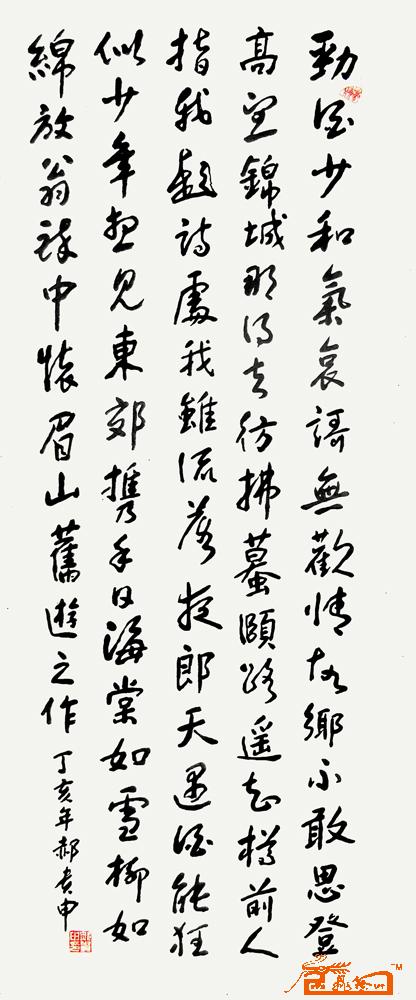 勁酒少和氣哀謌無歡情故鄉不敢思登
高望錦城那得去彷拂蟇頤路遥知樽前人
指我題詩處我雖流落夜郎天遇酒能狂
似少年想見東郊攜手日海棠如雪柳如
綿放翁醉中懷眉山舊遊之作
丁亥年郝贵申